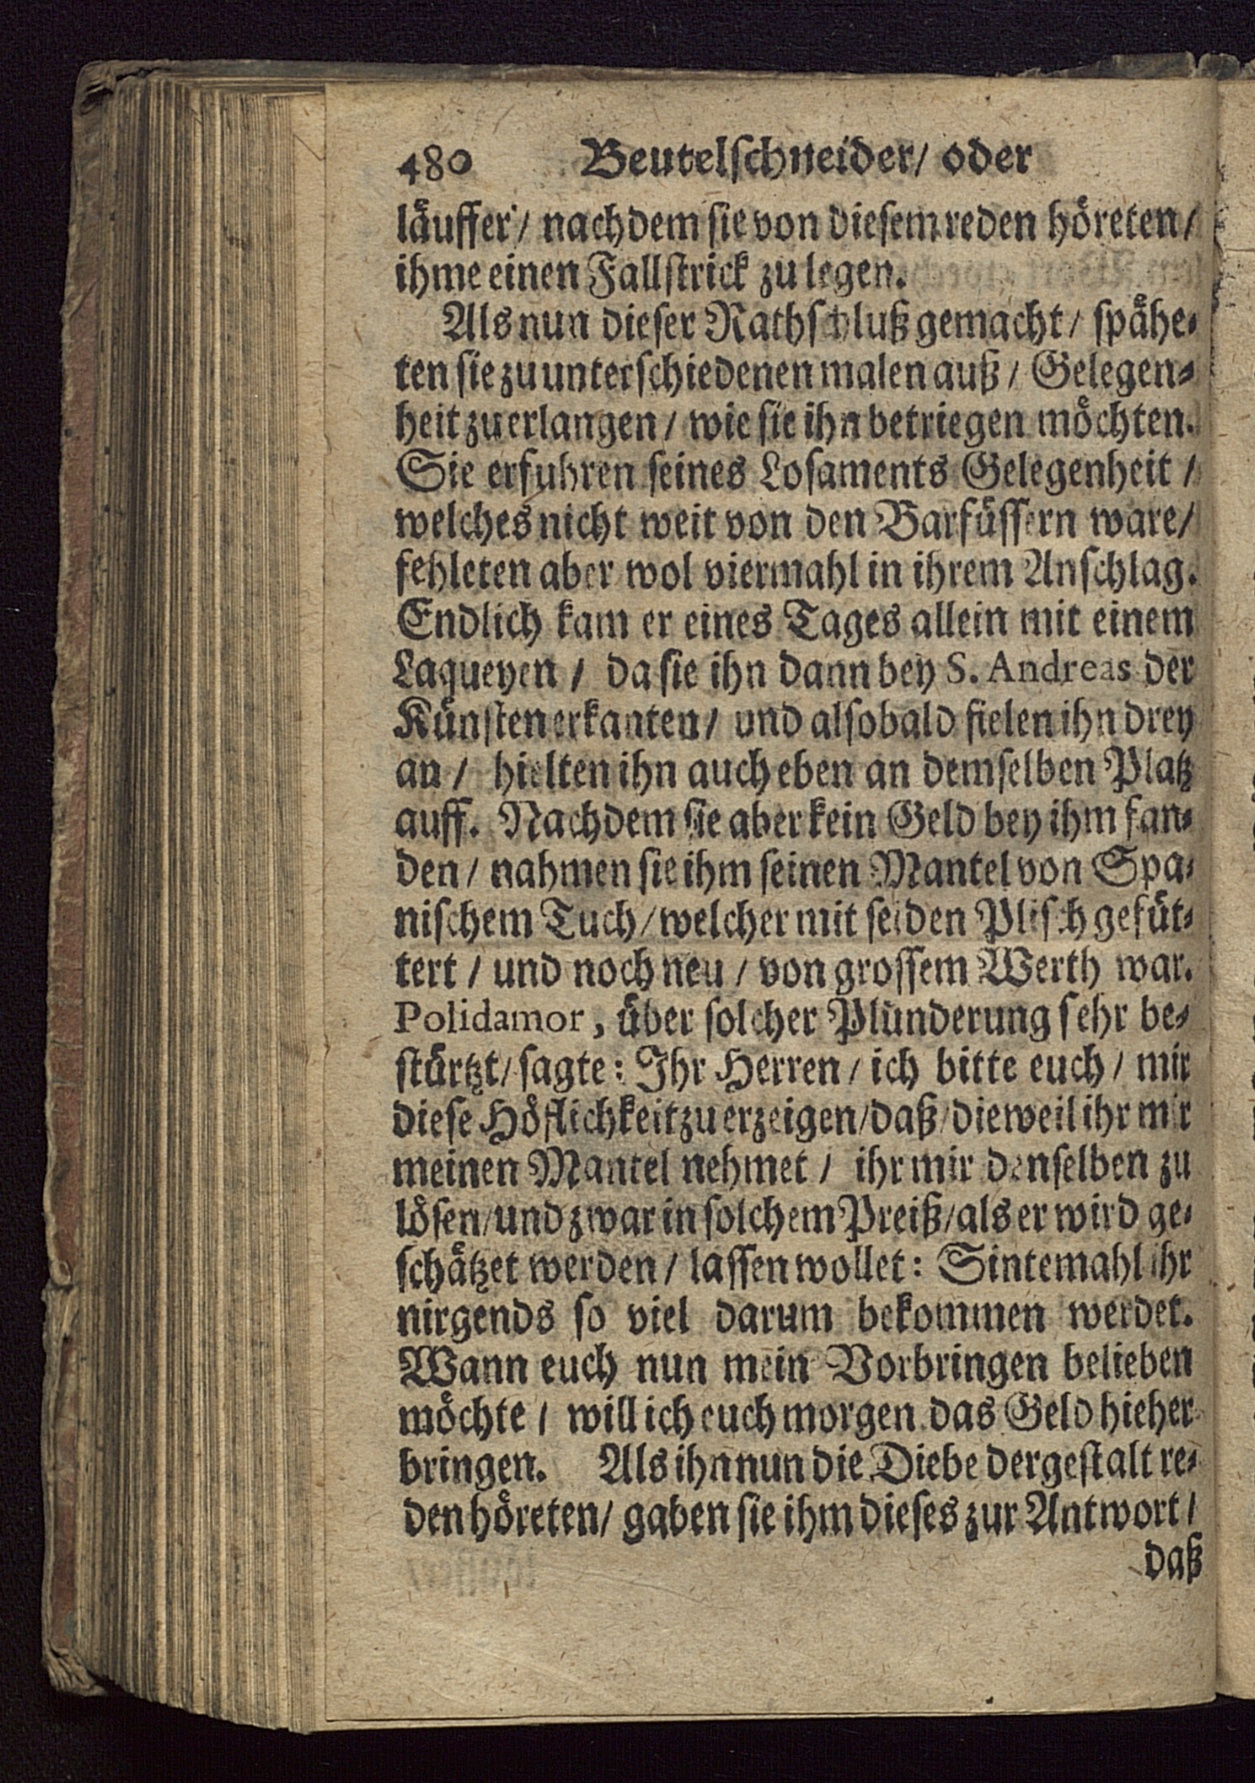 480 Beutelschneider/ oder
läuffer/ nachdem sie von diesem reden höreten/
ihme einen Fallstrick zu legen.
Als nun dieser Rathschluß gemacht/ spähe-
ten sie zu unterschiedenen malen auß/ Gelegen-
heit zu erlangen/ wie sie ihn betriegen möchten.
Sie erfuhren seines Losaments Gelegenheit/
welches nicht weit von den Barfüssern ware/
fehleten aber wol viermahl in ihrem Anschlag.
Endlich kam er eines Tages allein mit einem
Laqueyen/ da sie ihn dann bey S. Andreas der
Künsten erkanten/ und alsobald fielen ihn drey
an/ hielten ihn auch eben an demselben Platz
auff. Nachdem sie aber kein Geld bey ihm fan-
den/ nahmen sie ihm seinen Mantel von Spa-
nischem Tuch/ welcher mit seiden Plisch gefüt-
tert/ und noch neu/ von grossem Werth war.
Polidamor, über solcher Plünderung sehr be-
stürtzt/ sagte: Ihr Herren/ ich bitte euch/ mir
diese Höflichkeit zu erzeigen/ daß/ dieweil ihr mir
meinen Mantel nehmet/ ihr mir denselben zu
lösen/ und zwar in solchem Preiß/ als er wird ge-
schätzet werden/ lassen wollet: Sintemahl ihr
nirgends so viel darum bekommen werdet.
Wann euch nun mein Vorbringen belieben
möchte/ will ich euch morgen das Geld hieher
bringen. Als ihn nun die Diebe dergestalt re-
den höreten/ gaben sie ihm dieses zur Antwort/
daß